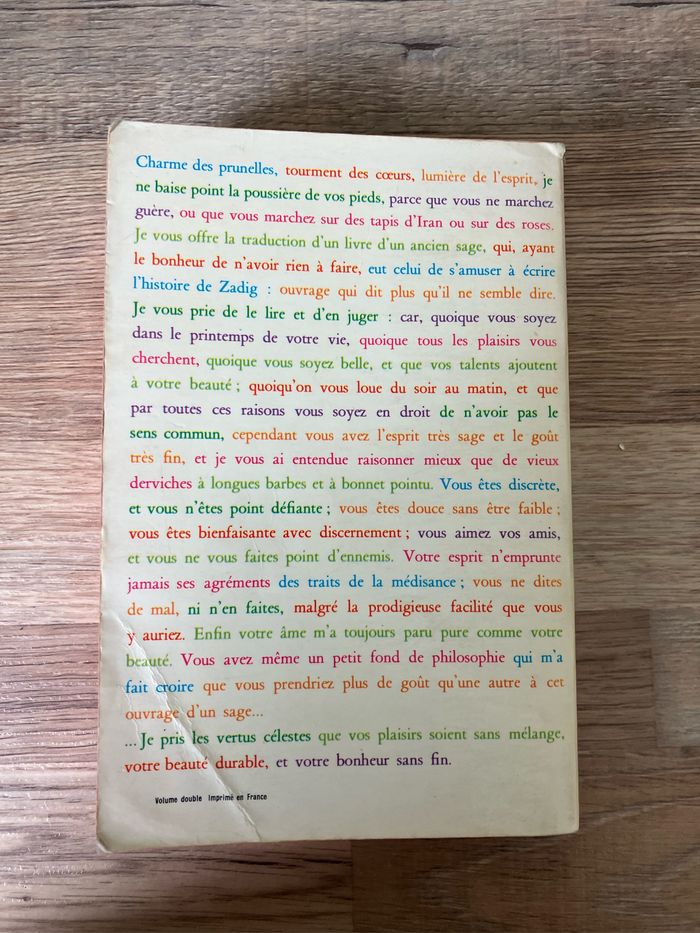 Charme des prunelles, tourment des cœurs, lumière de l'esprit, je
ne baise point la poussière de vos pieds, parce que vous ne marchez
guère, ou que vous marchez sur des tapis d'Iran ou sur des roses.
Je vous offre la traduction d'un livre d'un ancien sage, qui, ayant
le bonheur de n'avoir rien à faire, eut celui de s'amuser à écrire
l'histoire de Zadig : ouvrage qui dit plus qu'il ne semble dire.
Je vous prie de le lire et d'en juger : car, quoique vous soyez
dans le printemps de votre vie, quoique tous les plaisirs vous
cherchent, quoique vous soyez belle, et que vos talents ajoutent
à votre beauté ; quoiqu'on vous loue du soir au matin, et que
par toutes ces raisons vous soyez en droit de n'avoir pas le
sens commun, cependant vous avez l'esprit très sage et le goût
très fin, et je vous ai entendue raisonner mieux que de vieux
derviches à longues barbes et à bonnet pointu. Vous êtes discrète,
et vous n'êtes point défiante ; vous êtes douce sans être faible ;
vous êtes bienfaisante avec discernement ; vous aimez vos amis,
et vous ne vous faites point d'ennemis. Votre esprit n'emprunte
jamais ses agréments des traits de la médisance ; vous ne dites
de mal, ni n'en faites, malgré la prodigieuse facilité que vous
y auriez. Enfin votre âme m'a toujours paru pure comme votre
beauté. Vous avez même un petit fond de philosophie qui m'a
fait croire que vous prendriez plus de goût qu'une autre à cet
ouvrage d'un sage...
...Je pris les vertus célestes que vos plaisirs soient sans mélange,
votre beauté durable, et votre bonheur sans fin.
Volume double Imprimé en France